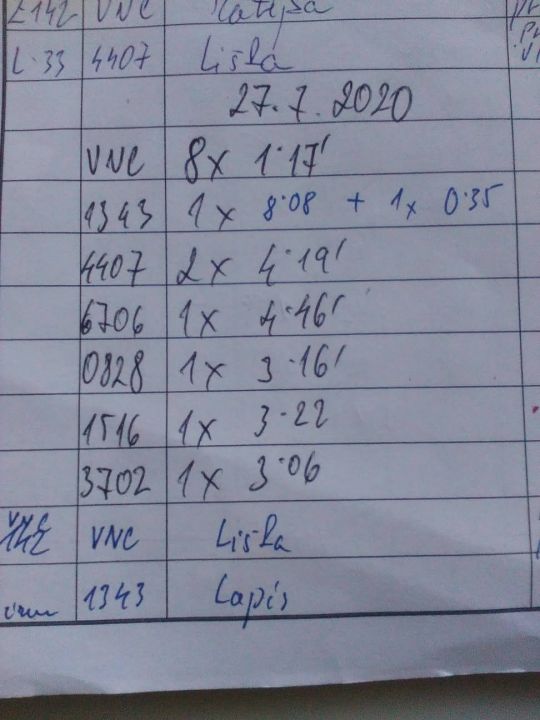 L142 VNC
L·33 4407 Liška
27.7.2020
VNC 8x 1·17'
1343 1x 8·08 + 1x 0·35
4407 2x 4·19'
6706 1x 4·46'
0828 1x 3·16'
1516 1x 3·22
3702 1x 3·06
142 VNC Liška
1343 Lapis